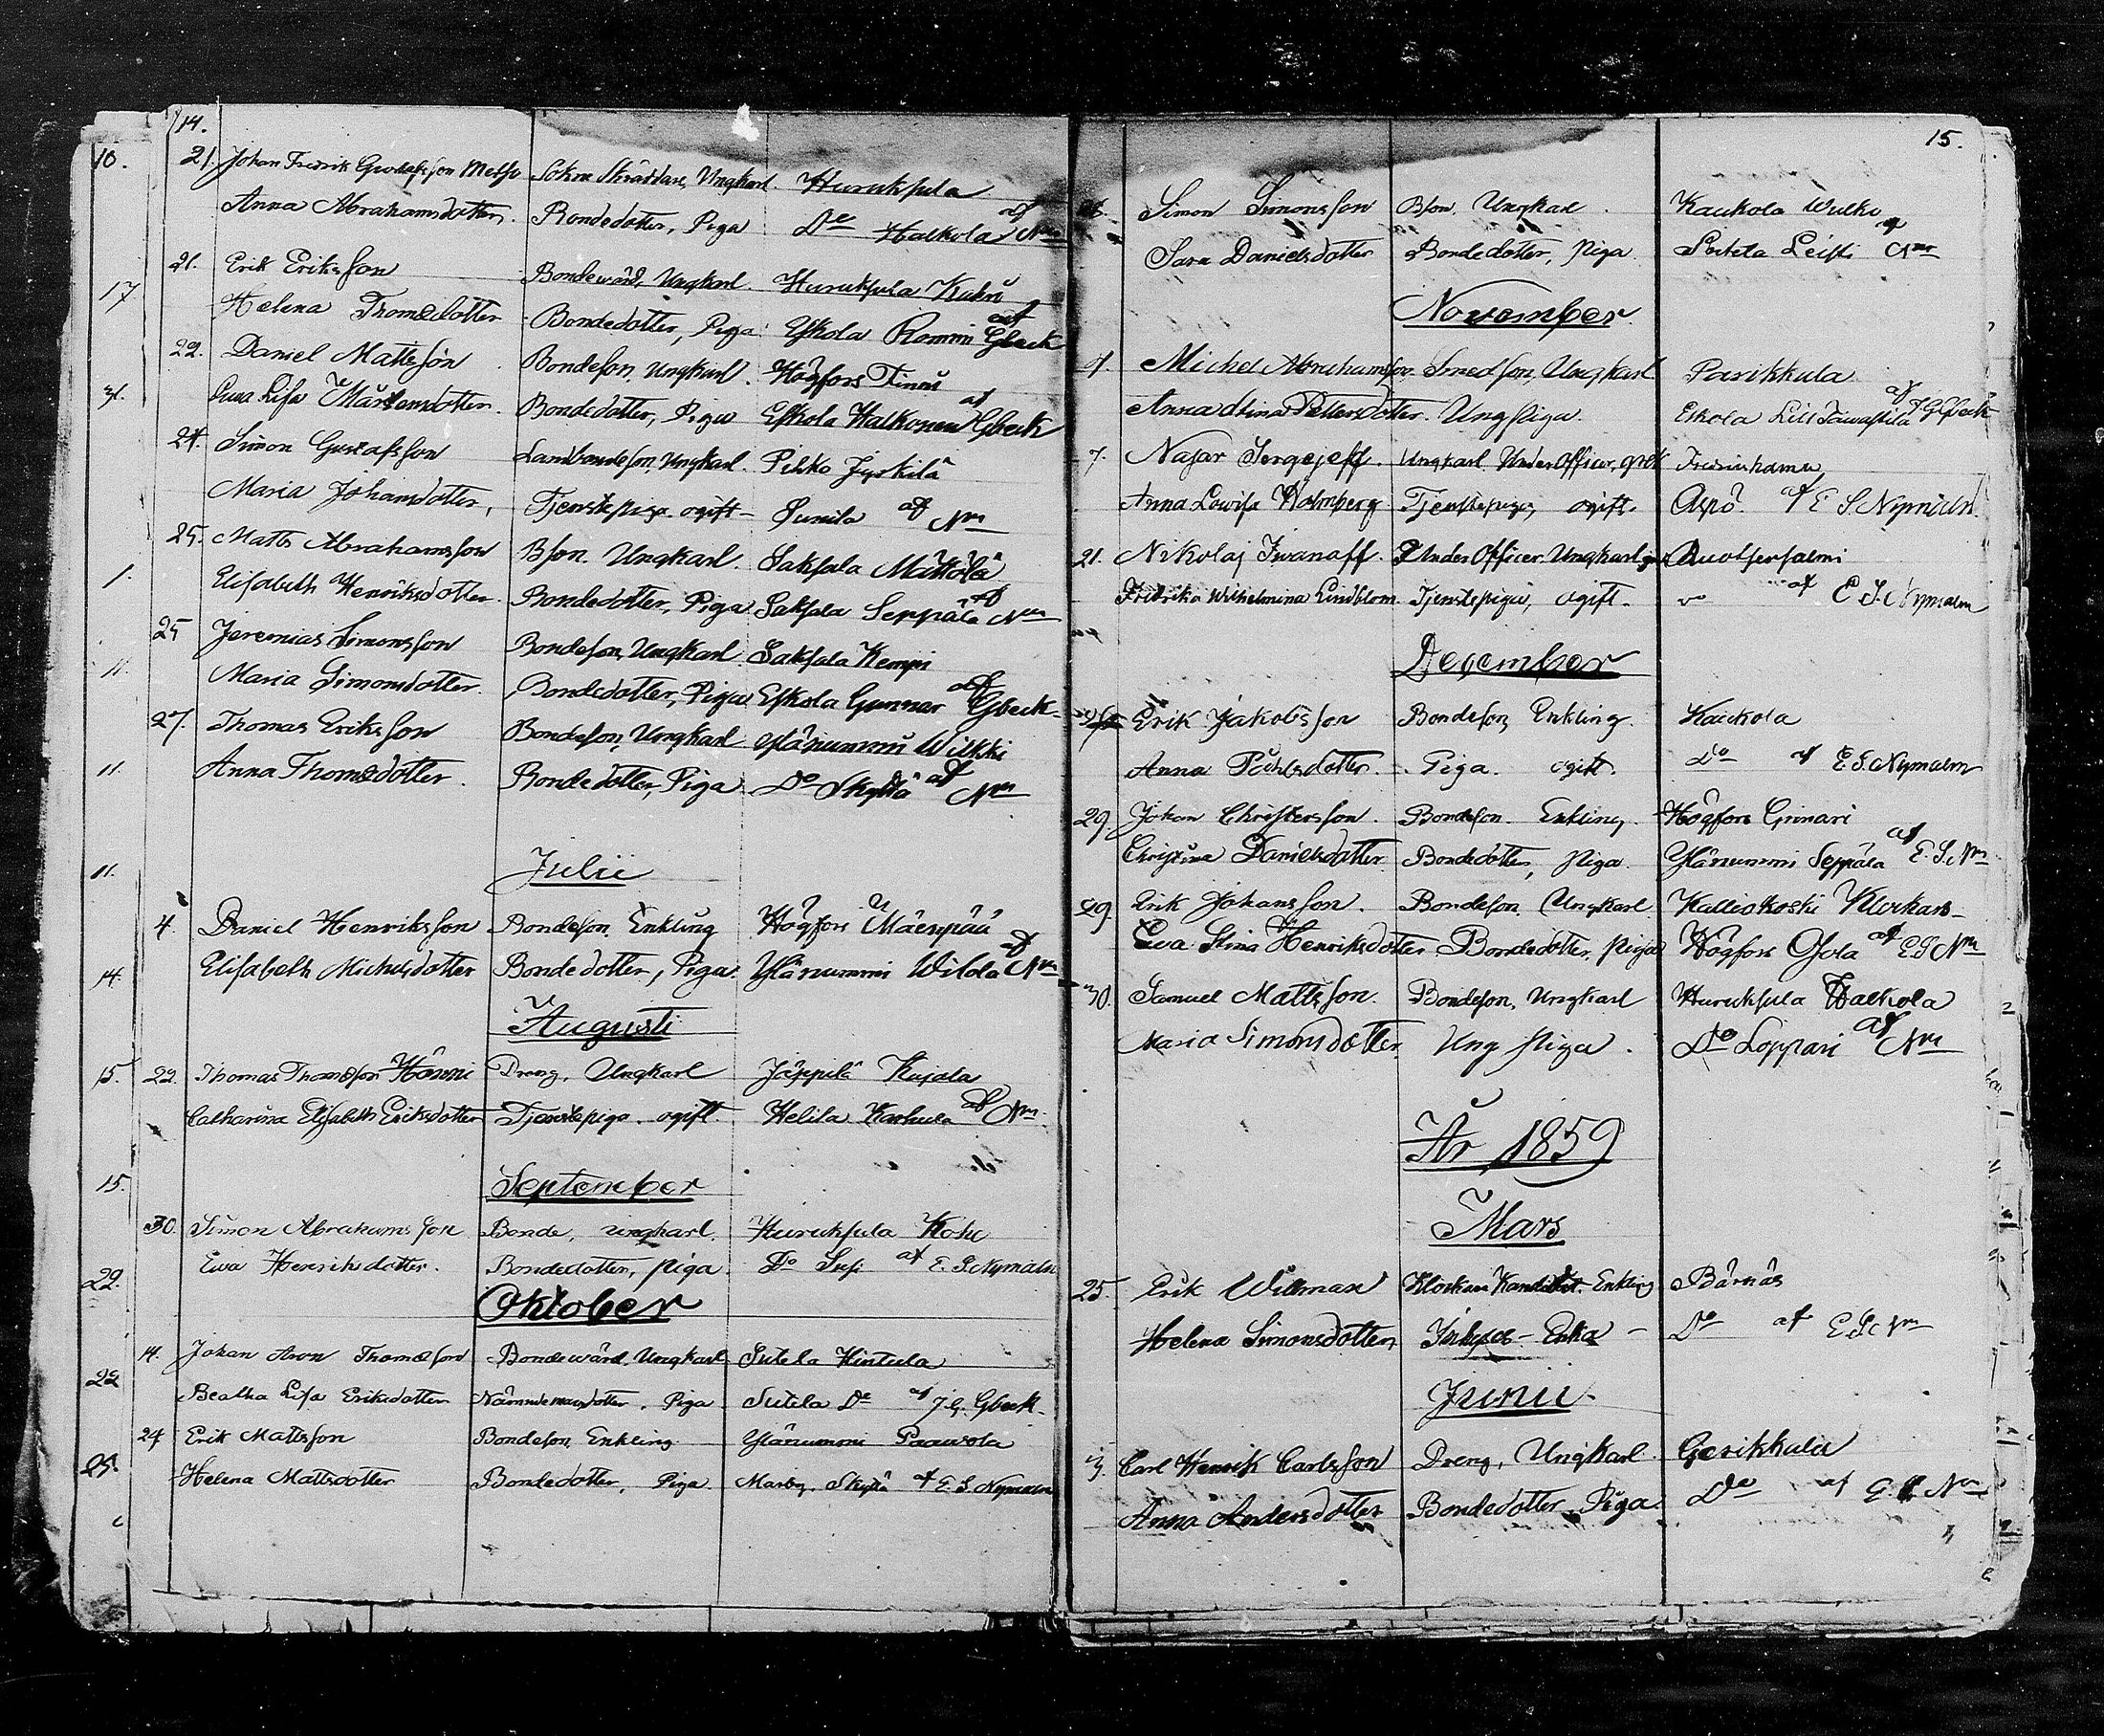 14.
10. 21. Johan Fredrik Gustafsson Sokne Skräddare, Ungkarl. Huruksula
Anna Abrahamsdotter. Bondedotter, Piga Do Halkola af Nm
21. Erik Eriksson Bondewärd, Ungkarl. Huruksula Kukri
17 Helena Thomsdotter Bondedotter, Piga Yskola Rommi af Gbeck
22. Daniel Mattsson Bondeson, Ungkarl. Högfors Finni
31. Ewa Lisa Mårtensdotter. Bondedotter, Piga Eskola Halkonen af Gbeck
24. Simon Gustafsson Landbondeson, Ungkarl. Pihko Jyrkilä
Maria Johansdotter, Tjenstepiga ogift Sunila af Nm
25. Matts Abrahamsson Bson. Ungkarl. Saksala Mattola
1. Elisabeth Henriksdotter. Bondedotter, Piga Saksala Seppälä af Nm
25 Jeremias Simonsson Bondeson, Ungkarl Saksala Kempi
11. Maria Simonsdotter. Bondedotter, Piga Eskola Gunnar af Gbeck
27. Thomas Eriksson Bondeson, Ungkarl Ylänummi Wilkki
11. Anna Thomsdotter. Bondedotter, Piga Do Skyttä af Nm
Julii
11.
4. Daniel Henriksson Bondeson, Enkling Högfors Mäenpää
14. Elisabeth Michelsdotter Bondedotter, Piga Ylänummi Wilola af Nm
Augusti
15. 22. Thomas Thomsson Hänni Dreng, Ungkarl Jäppilä Kujala
Catharina Elisabeth Eriksdotter Tjenstepiga ogift. Helila Karhula af Nm.
15. September
30. Simon Abrahamsson Bonde, ungkarl. Huruksula Koho
29. Ewa Henriksdotter. Bondedotter, piga Do Susi af E. S. Nymalm
Oktober
14. Johan Aron Thomsson Bondewärd, Ungkarl Sutela Hintula
22 Beatha Lisa Eriksdotter Nämndemansdotter, Piga Sutela Do af J. G. Gbeck
24 Erik Mattsson Bondeson, Enkling Ylänummi Paavola
25. Helena Mattsdotter Bondedotter, Piga Marby Skyttä af E. S. Nymalm
15.
Simon Simonsson Bson. Ungkarl. Kaukola Wulko
Sara Danielsdotter Bondedotter, piga Leisti af Nm
November
4. Michel Abrahamsson Smedson, Ungkarl Parikkula
Anna Stina Pettersdotter. Ung piga. Eskola Lill Tawastila af J G Gbeck
7. Nasar Sergejeff. Ungkarl Under Officer, Fredrikshamn
Anna Lowisa Holmberg Tjenstepiga, ogift. Aspö af E S Nymalm
21. Nikolaj Iwanaff. Under Officer Ungkarl Ruotsensalmi
Fredrika Wilhelmina Lindblom Tjenstepiga, ogift. af E. S. Nymalm
December
26 Erik Jakobsson Bondeson, Enkling Kaukola
Anna Påhlsdotter. Piga. ogift. Do af E. S. Nymalm
29. Johan Christersson. Bondeson. Enkling. Högfors Grinari
Christina Danielsdotter Bondedotter, piga. Ylänummi Seppälä af E. S. Nm
29. Erik Johansson. Bondeson, Ungkarl Kallioko­ski Klockars
Ewa Stina Henriksdotter Bondedotter, piga Högfors Ojola af E S Nm
30. Samuel Mattsson. Bondeson, Ungkarl Huruksula Halkola
Maria Simonsdotter Ung piga. Do Loppari af Nm
År 1859
Mars
25. Erik Willman Klockare Kandidat. Enkling Bärnäs
Helena Simonsdotter, Inhyses Enka Do af E. S. Nm
Junii.
3. Carl Henrik Carlsson Dreng, Ungkarl Gerikkula
Anna Andersdotter Bondedotter, Piga. Do af E. S. Nm